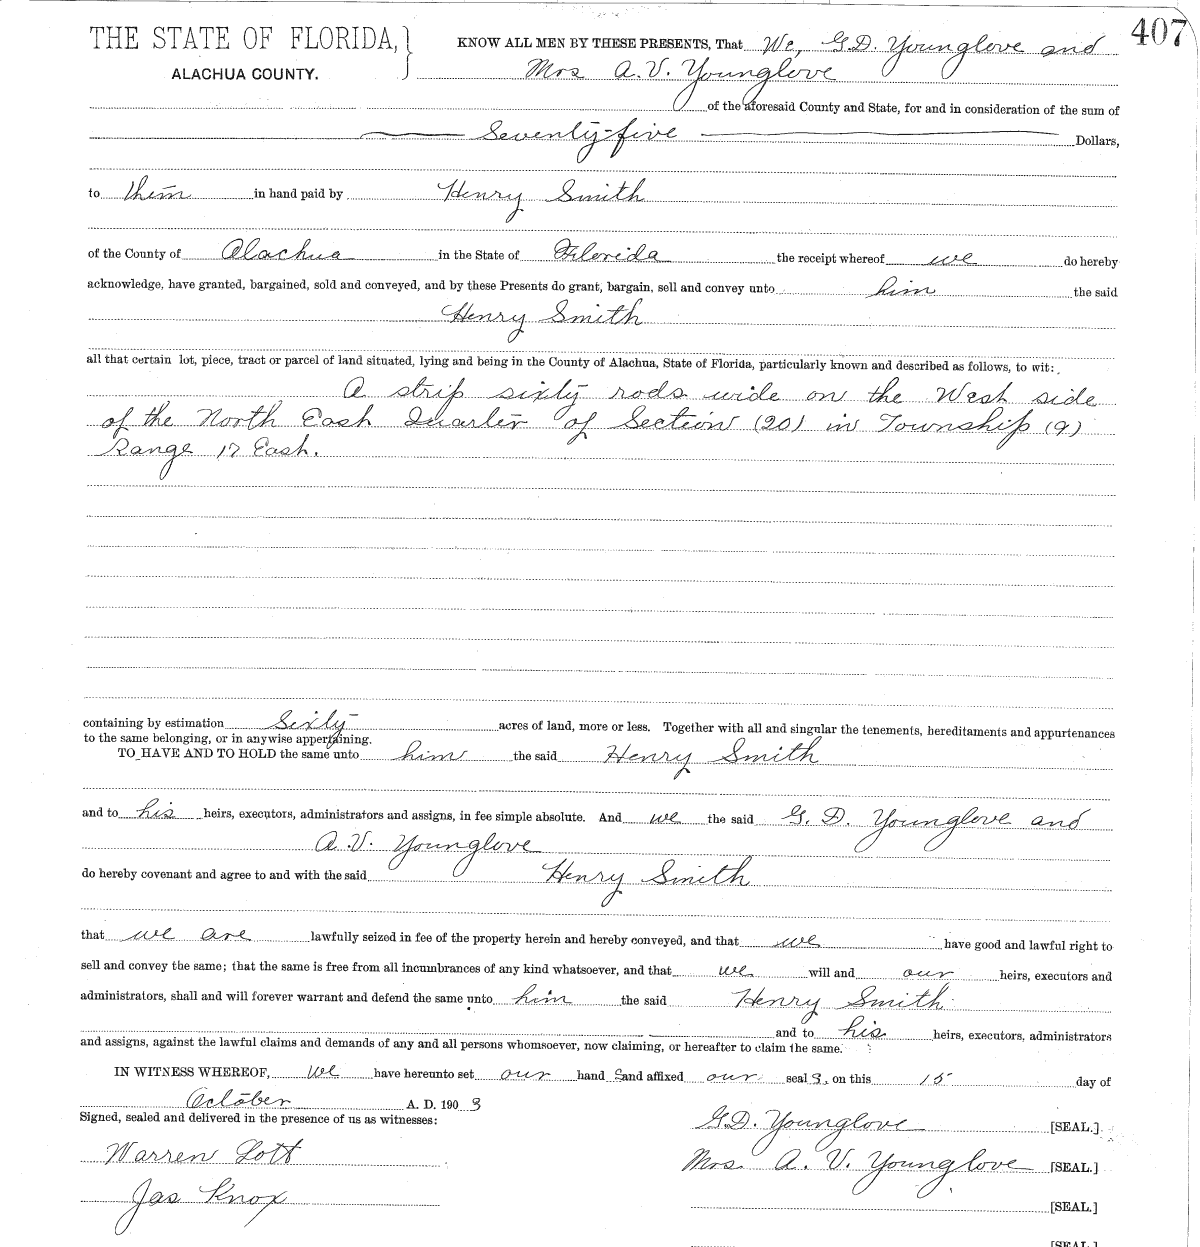 407
THE STATE OF FLORIDA,
ALACHUA COUNTY.
KNOW ALL MEN BY THESE PRESENTS, That We, G.D. Younglove and
Mrs A.V. Younglove
of the aforesaid County and State, for and in consideration of the sum of
Seventy-five Dollars,
to them in hand paid by Henry Smith
of the County of Alachua in the State of Florida the receipt whereof we do hereby
acknowledge, have granted, bargained, sold and conveyed, and by these Presents do grant, bargain, sell and convey unto him the said
Henry Smith
all that certain lot, piece, tract or parcel of land situated, lying and being in the County of Alachua, State of Florida, particularly known and described as follows, to wit:
A strip sixty rods wide on the West side
of the North East Quarter of Section (20) in Township (9)
Range 17 East.
containing by estimation Sixty acres of land, more or less. Together with all and singular the tenements, hereditaments and appurtenances
to the same belonging, or in anywise appertaining.
TO HAVE AND TO HOLD the same unto him the said Henry Smith
and to his heirs, executors, administrators and assigns, in fee simple absolute. And we the said G. D. Younglove and
A.V. Younglove
do hereby covenant and agree to and with the said Henry Smith
that we are lawfully seized in fee of the property herein and hereby conveyed, and that we have good and lawful right to
sell and convey the same; that the same is free from all incumbrances of any kind whatsoever, and that we will and our heirs, executors and
administrators, shall and will forever warrant and defend the same unto him the said Henry Smith
and to his heirs, executors, administrators
and assigns, against the lawful claims and demands of any and all persons whomsoever, now claiming, or hereafter to claim the same.
IN WITNESS WHEREOF, we have hereunto set our hand s and affixed our seal s, on this 15 day of
October A. D. 1903
Signed, sealed and delivered in the presence of us as witnesses:
G.D. Younglove [SEAL.]
Warren Lott
Mrs. A. V. Younglove [SEAL.]
Jas Knox
[SEAL.]
[SEAL.]